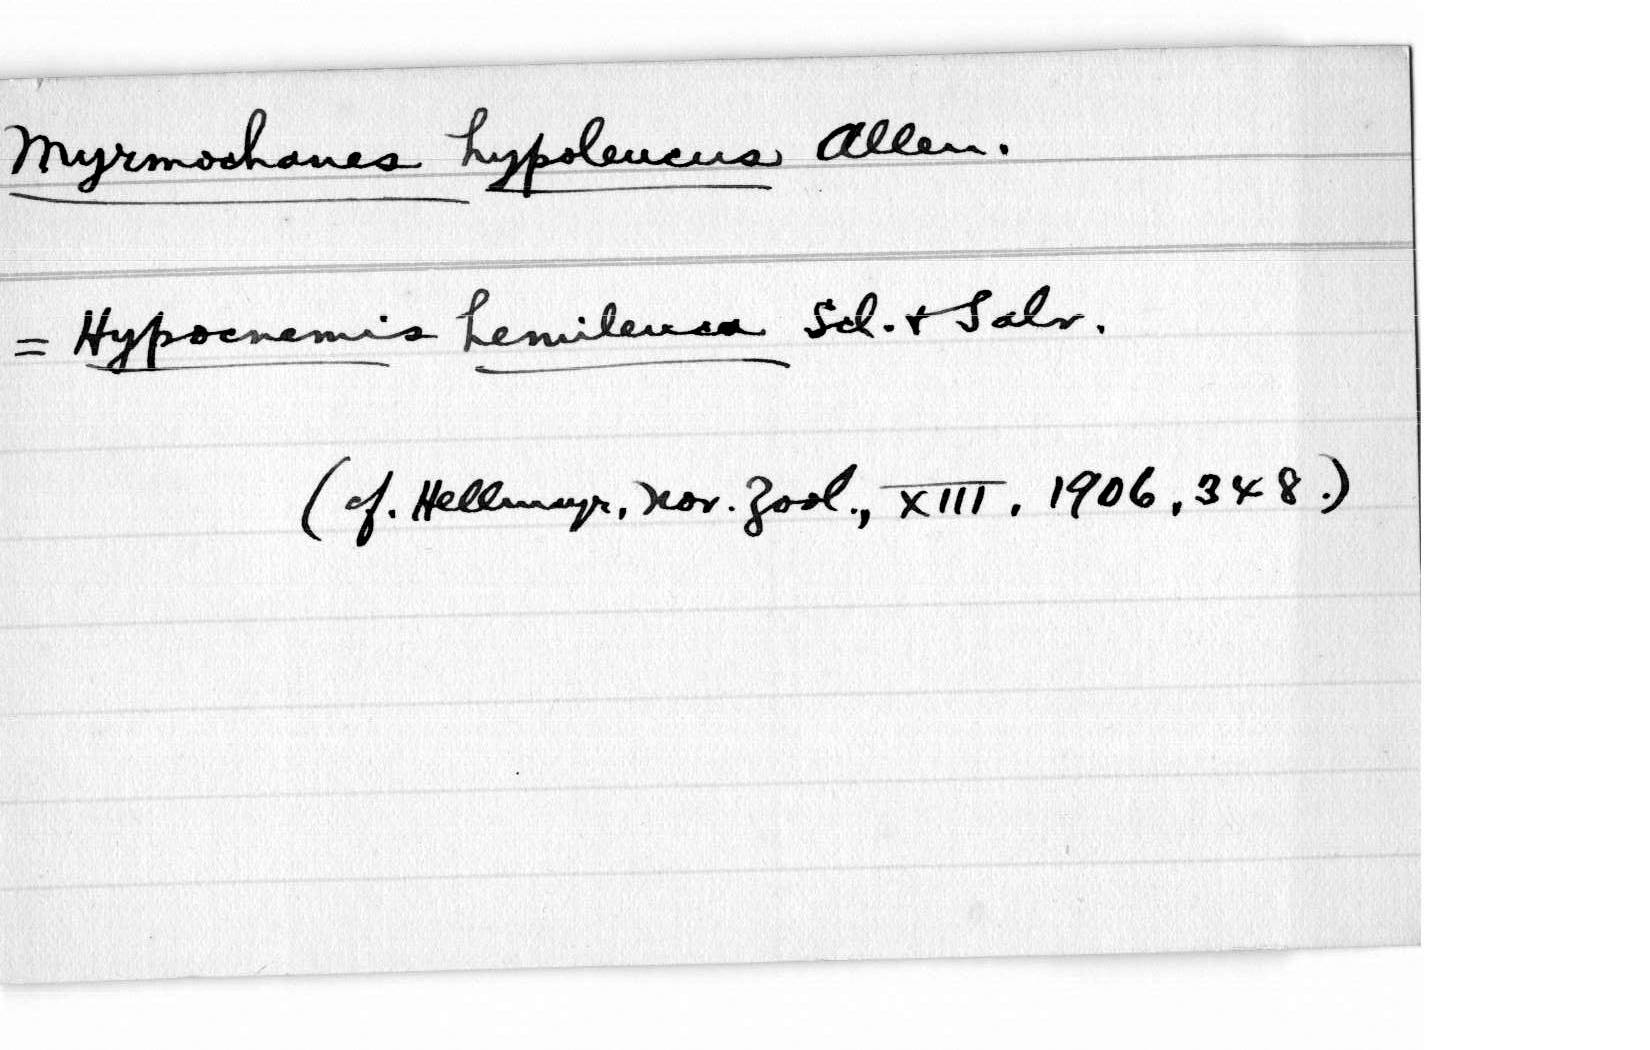 Myrmochanes hypoleucus Allen.
= Hypocnemis hemileuca Scl. + Salv.
(cf. Hellmayr, Nov. Zool., XIII, 1906, 348.)